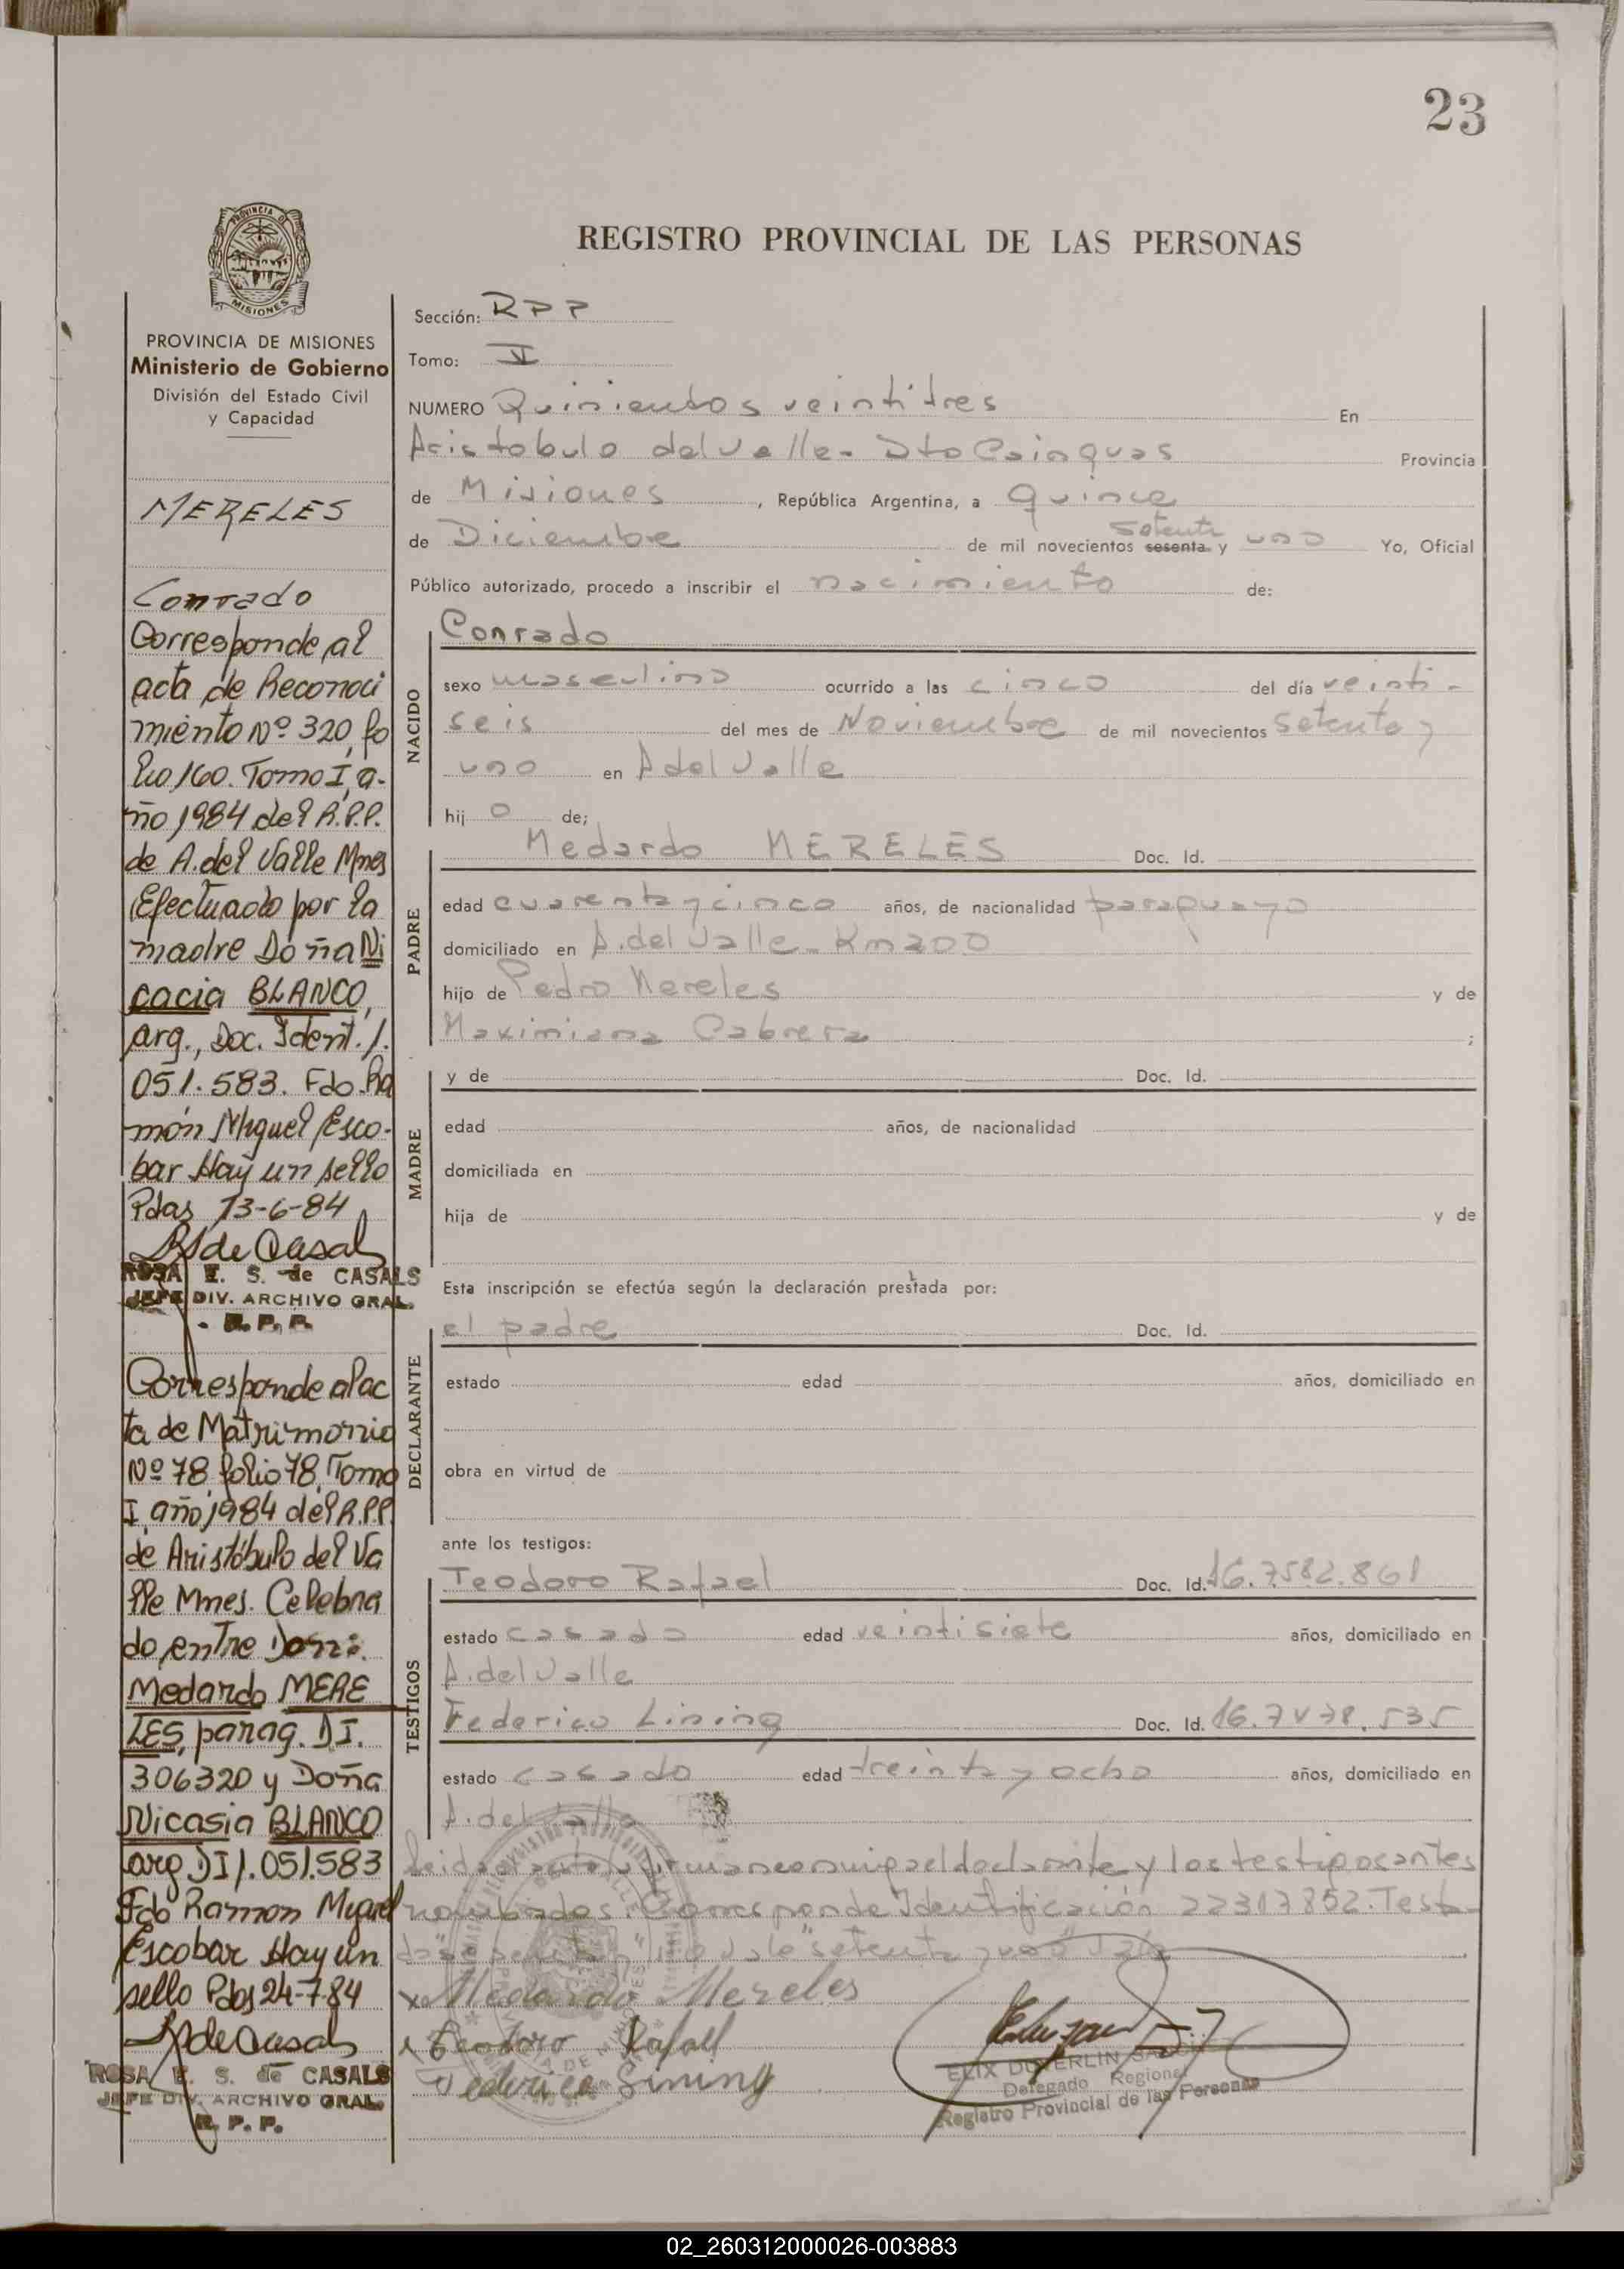 23
PROVINCIA DE
MISIONES
REGISTRO PROVINCIAL DE LAS PERSONAS
PROVINCIA DE MISIONES
Ministerio de Gobierno
División del Estado Civil
y Capacidad
MERELES
Conrado
Corresponde al
acta de Reconoci
miento Nº 320, fo
lio 160. Tomo I, a-
ño 1984 del R.P.P.
de A. del Valle Mnes
Efectuado por la
madre Doña Ni
cacia BLANCO,
arg., Doc. Ident. 1.
051.583. Fdo. Ra
món Miguel Esco-
bar Hay un sello
Pdas 13-6-84
ROSA E. S. de CASALS
JEFE DIV. ARCHIVO GRAL.
R. P. P.
Corresponde al ac
ta de Matrimonio
Nº 78 folio 78, Tomo
I, año 1984 del R.P.P.
de Aristóbulo del Va
lle Mnes. Celebra
do entre Don:
Medardo MERE
LES, parag. DI.
306320 y Doña
Nicasia BLANCO
arg DI 1.051.583
Fdo Ramon Miguel
Escobar Hay un
sello Pdas 24-7-84
ROSA E. S. de CASALS
JEFE DIV. ARCHIVO GRAL.
R. P. P.
Sección: RPP
Tomo: II
NUMERO Quinientos veintitres En
Aristobulo del Valle - Dto Cainguas Provincia
de Misiones, República Argentina, a quince
de Diciembre de mil novecientos sesenta setenta y uno Yo, Oficial
Público autorizado, procedo a inscribir el nacimiento de:
NACIDO
Conrado
sexo masculino ocurrido a las cinco del día veinti-
seis del mes de Noviembre de mil novecientos setenta y
uno en A del Valle
hijo de;
PADRE
Medardo MERELES Doc. Id.
edad cuarenta y cinco años, de nacionalidad paraguayo
domiciliado en A. del Valle - Km 200
hijo de Pedro Mereles y de
Maximiana Cabrera ;
MADRE
y de Doc. Id.
edad años, de nacionalidad
domiciliada en
hija de y de
Esta inscripción se efectúa según la declaración prestada por:
DECLARANTE
el padre Doc. Id.
estado edad años, domiciliado en
obra en virtud de
ante los testigos:
TESTIGOS
Teodoro Rafael Doc. Id.
estado casado edad veintisiete años, domiciliado en
A. del Valle
Federico Lining Doc. Id.
estado casado edad treinta y ocho años, domiciliado en
A. del Valle
Leida el acta firman conmigo el declarante y los testigos antes
nombrados. Corresponde Identificación 22307852. Testa-
"setenta y uno" Vale
x Medardo Mereles
x Teodoro Rafael
Federico Lining
Delegado Regional
Registro Provincial de las Personas
02_260312000026-003883